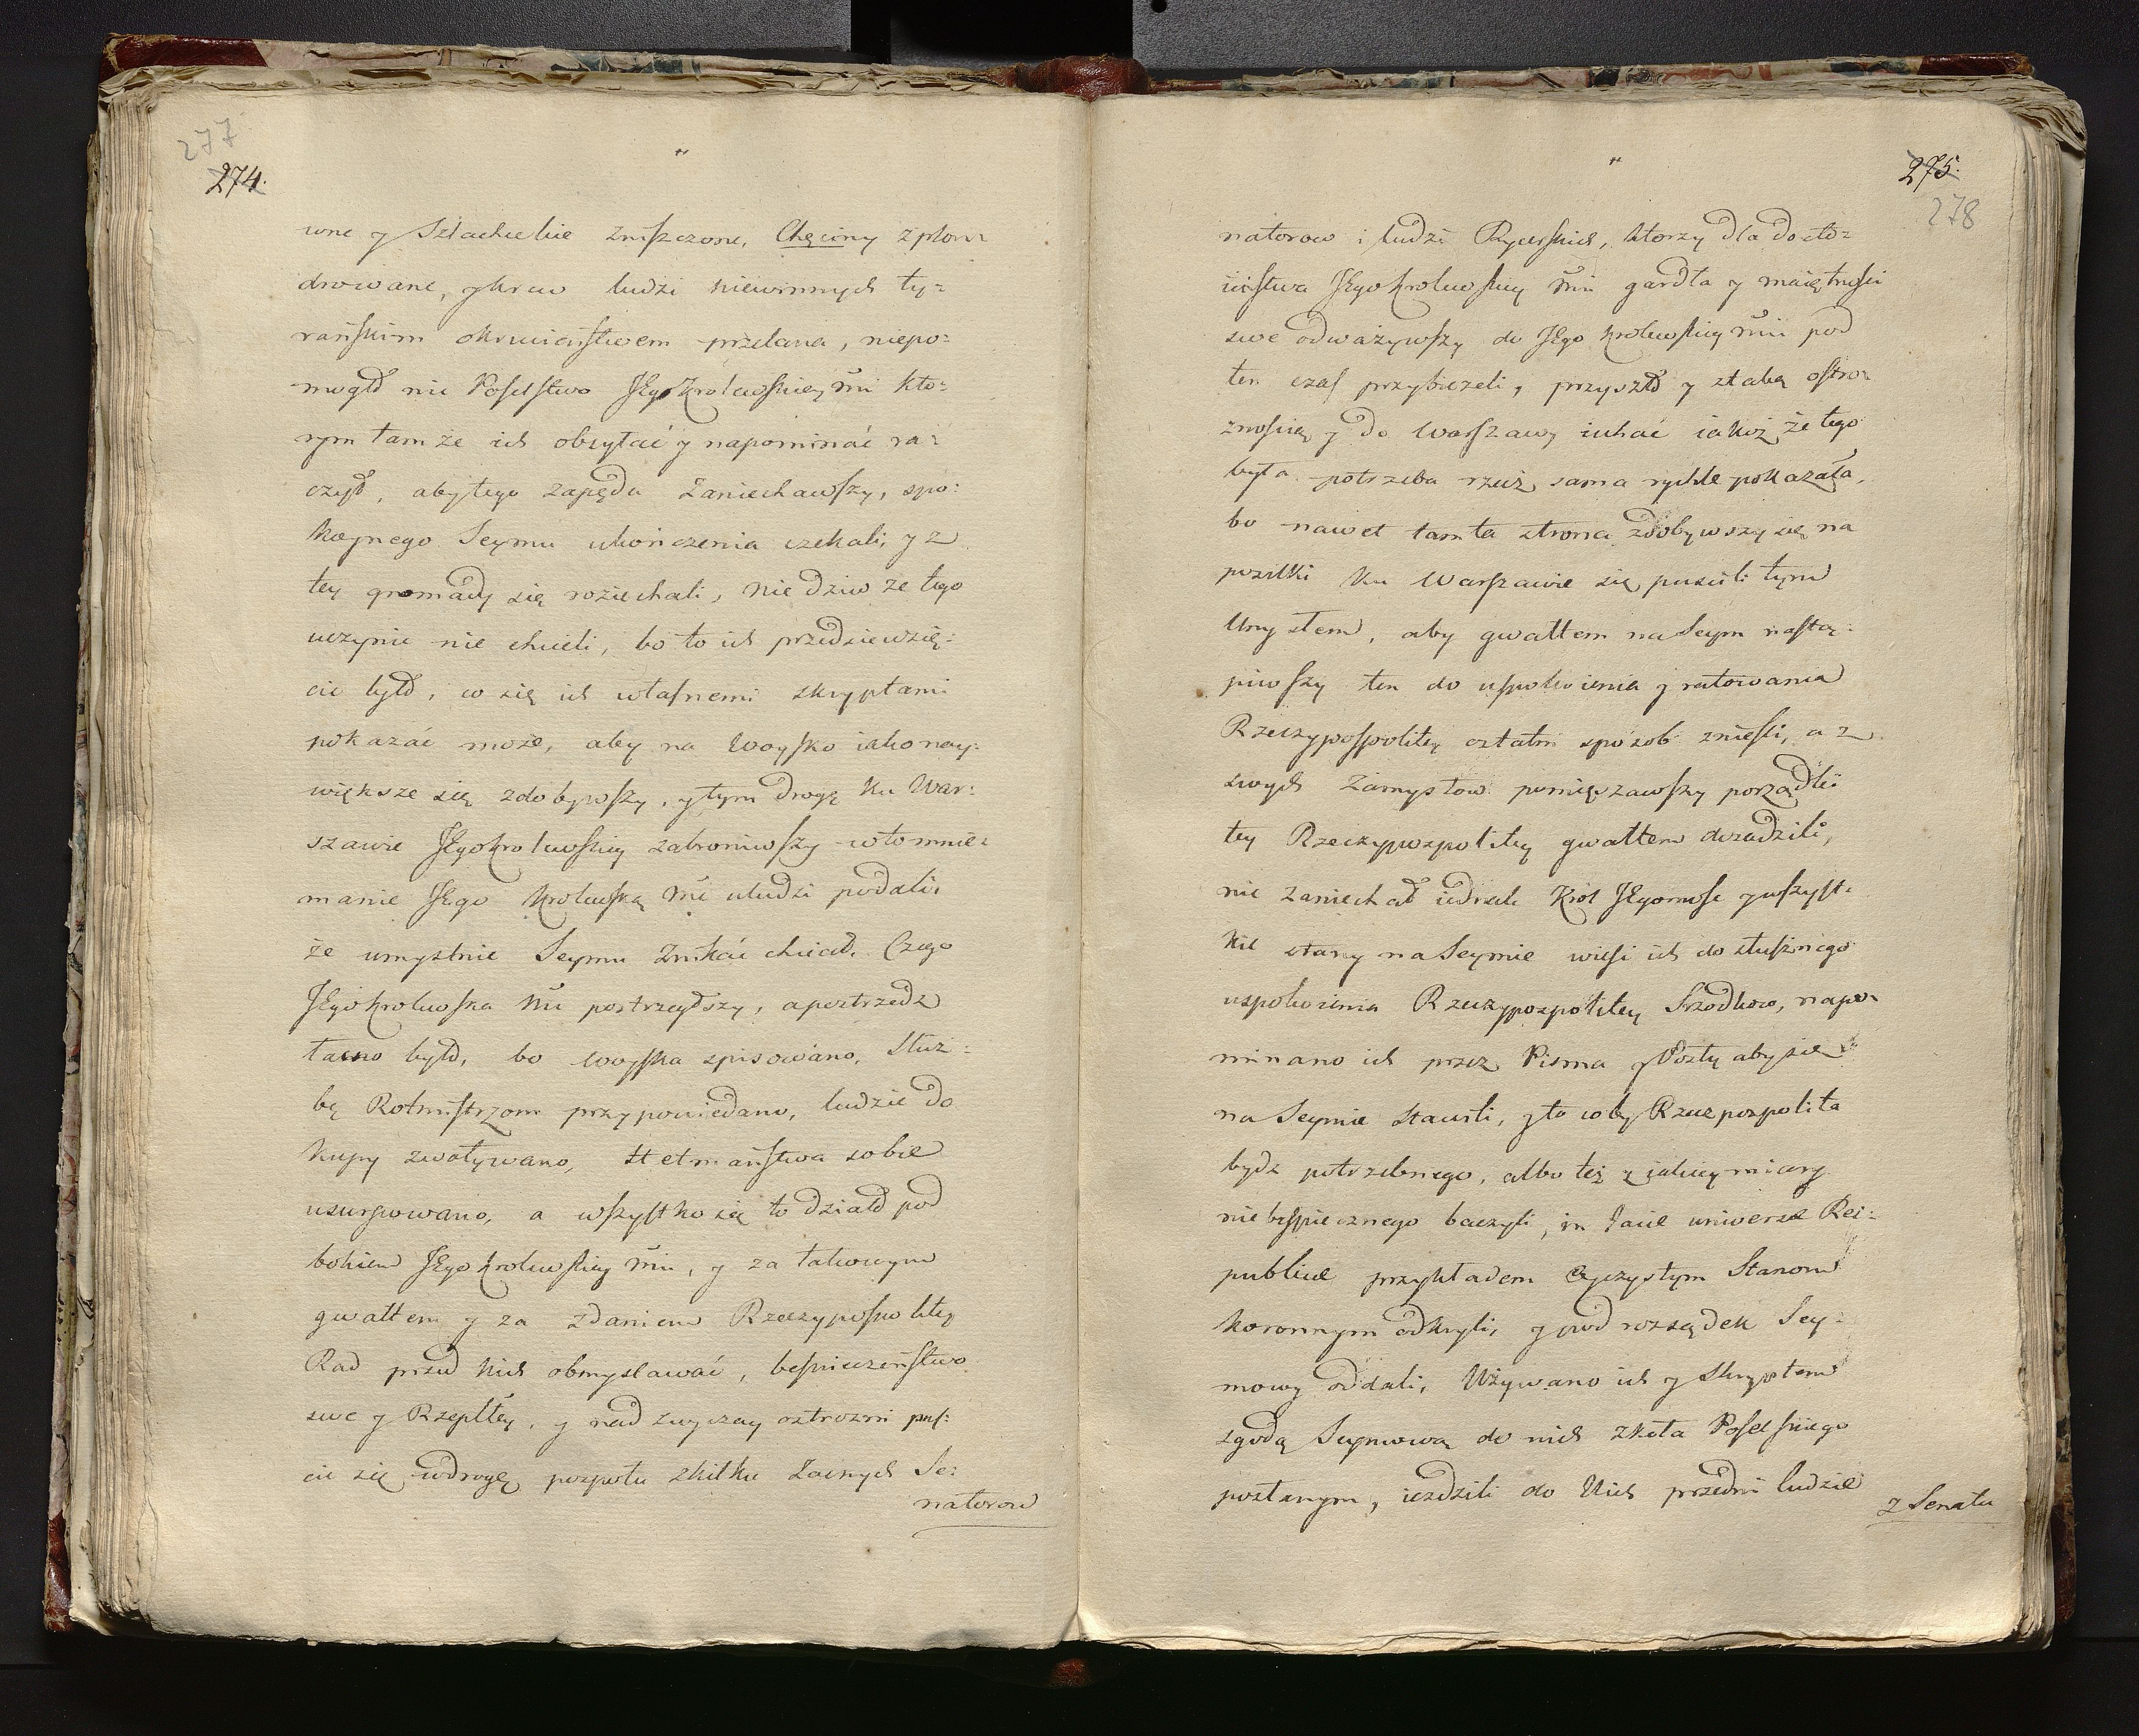 277
274.
wne y Szlacheckie zniszczone, Chęciny zplon=
drowane, y krew ludzi niewinnych ty=
rańskim okrucieństwem przelana, niepo=
mogło nic Poselstwo JEgo Krolewskiey Mci kto=
rym tam że ich obsyłać y napominać ra=
czył, aby tego zapędu zaniechawszy, spo=
koynego Seymu ukończenia czekali, y z
tey gromady się roziechali, nie dziw ze tego
uczynic nie chcieli, bo to ich przedsiewzię=
cie było, co się ich własnemi skryptami
pokazać może, aby na Woysko iako nay=
większe się zdobywszy, y tym drogę ku War=
szawie JEgo Krolewskiey zabroniwszy w to mnie=
manie JEgo Krolewską Mc u ludzi podali,
że umyslnie Seymu znikać chciał. Czego
JEgo Krolewska Mc postrzegszy, a postrzedz
łacno było, bo woyska spisowano, Służ=
bę Rotmistrzom przypowiedano, ludzie do
kupy zwoływano, Hetmaństwa sobie
usurpowano, a wszystko się to działo pod
bokiem JEgo Krolewskiey Mci, y za takowym
gwałtem y za zdaniem Rzeczypospolitey
Rad przed nich obmyslawać, bespieczeństwo
swe y Rzeplitey, y nad zwyczay ostrozni pus=
cic się w drogę pospołu z kilku zacnych Se=
natorow
275.
278
natorow i ludzi Rycerskich, ktorzy dla dosto=
ieństwa JEgo Krolewskiey Mci gardła y maiętności
swe odważywszy do JEgo Krolewskiey Mci pod
ten czas przybieżeli, przyszło y z taką ostro=
znoscią y do Warszawy iechać iakoż, że tego
była potrzeba rzecz sama rychle pokazała,
bo nawet tam ta strona zdobywszy się na
posilki ku Warszawie się puscili tym
Umyslem, aby gwałtem na Seym nastą=
piwszy ten do uspokoienia y ratowania
Rzeczypospolitey ostatni sposob zniesli, a z
swych zamysłow pomięszawszy porządki
tey Rzeczypospolitey gwałtem dosadzili,
nie zaniechał iednak Krol JEgomosc y wszyst=
kie stany na Seymie wiesi ich do słusznego
uspokoienia Rzeczypospolitey Srzodkow, napo=
minano ich przez Pisma y Posły aby się
na Seymie stawili, y to coby Rzeczpospolita
bydz potrzebnego, albo też z iakiey miary
niebespiecznego baczyli, in facie universæ Rei=
publicæ przykładem oyczystym Stanom
koronnym odkryli, y pod rozsądek Sey=
mowy oddali, Używano ich y Skryptem
zgodą Seymową do nich z koła Poselskiego
posłanym, iezdzili do Nich przedni ludzie
z Senatu